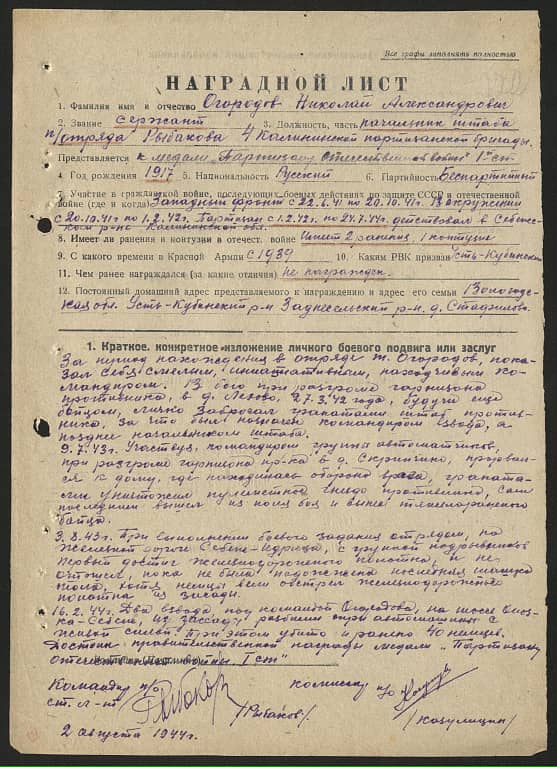 Все графы заполнять полностью
НАГРАДНОЙ ЛИСТ
1. Фамилия имя и отчество Огородов Николай Александрович
2. Звание сержант 3. Должность, часть начальник штаба
п/отряда Рыбакова 4 Калининской партизанской бригады.
Представляется к медали "Партизану отечественной войны" I ст.
4. Год рождения 1917 5. Национальность Русский 6. Партийность беспартийный
7. Участие в гражданской войне, последующих боевых действиях по защите СССР и отечественной
войне (где и когда) Западный фронт с 22.6.41 по 20.10.41г. В окружении
с 20.10.41 по 1.2.42г. Партизан с 1.2.42г. по 27.7.44г. действовал в Себеж-
ском р-не Калининской обл.
8. Имеет ли ранения и контузии в отечест. войне Имеет 2 ранения, 1 контузию
9. С какого времени в Красной Армии с 1939 10. Каким РВК призван Усть-Кубинским
11. Чем ранее награждался (за какие отличия) Не награжден.
12. Постоянный домашний адрес представляемого к награждению и адрес его семьи Вологод-
ская обл. Усть-Кубинский р-н д.
1. Краткое, конкретное изложение личного боевого подвига или заслуг
За период нахождения в отряде т. Огородов, пока-
зал себя смелым, инициативным, находчивым ко-
мандиром. В бою при разгроме гарнизона
противника, в д. 27.3.42 года, будучи еще
бойцом, лично забросал гранатами штаб против-
ника, за что был назначен командиром взвода, а
позднее начальником штаба.
9.7.43г. Участвуя, командиром группы автоматчиков,
при разгроме гарнизона пр-ка в д. прорвал-
ся к дому, где находилась оборона врага, граната-
ми уничтожил пулеметное гнездо противника, сам
последним вышел из поля боя и вынес тяжелораненого
бойца.
3.8.43г. При выполнении боевого задания отрядом, на
железной дороге Себеж-Идрица, с группой подрывников
первый достиг железнодорожного полотна, и не
отошел, пока не была подожжена последняя шашка
тола, хотя немцы вели обстрел железнодорожного
полотна из засады.
16.2.44г. Два взвода, под командой Огородова, на шоссе Опоч-
ка-Себеж, из засады, разбили автомашины с
живой силой. При этом убито и ранено 40 немцев.
Достоин правительственной награды медали "Партизану
отечественной войны I ст"
Командир п/о
ст. л-нт Рыбаков /Рыбаков/
комиссар п/о
2 августа 1944г.